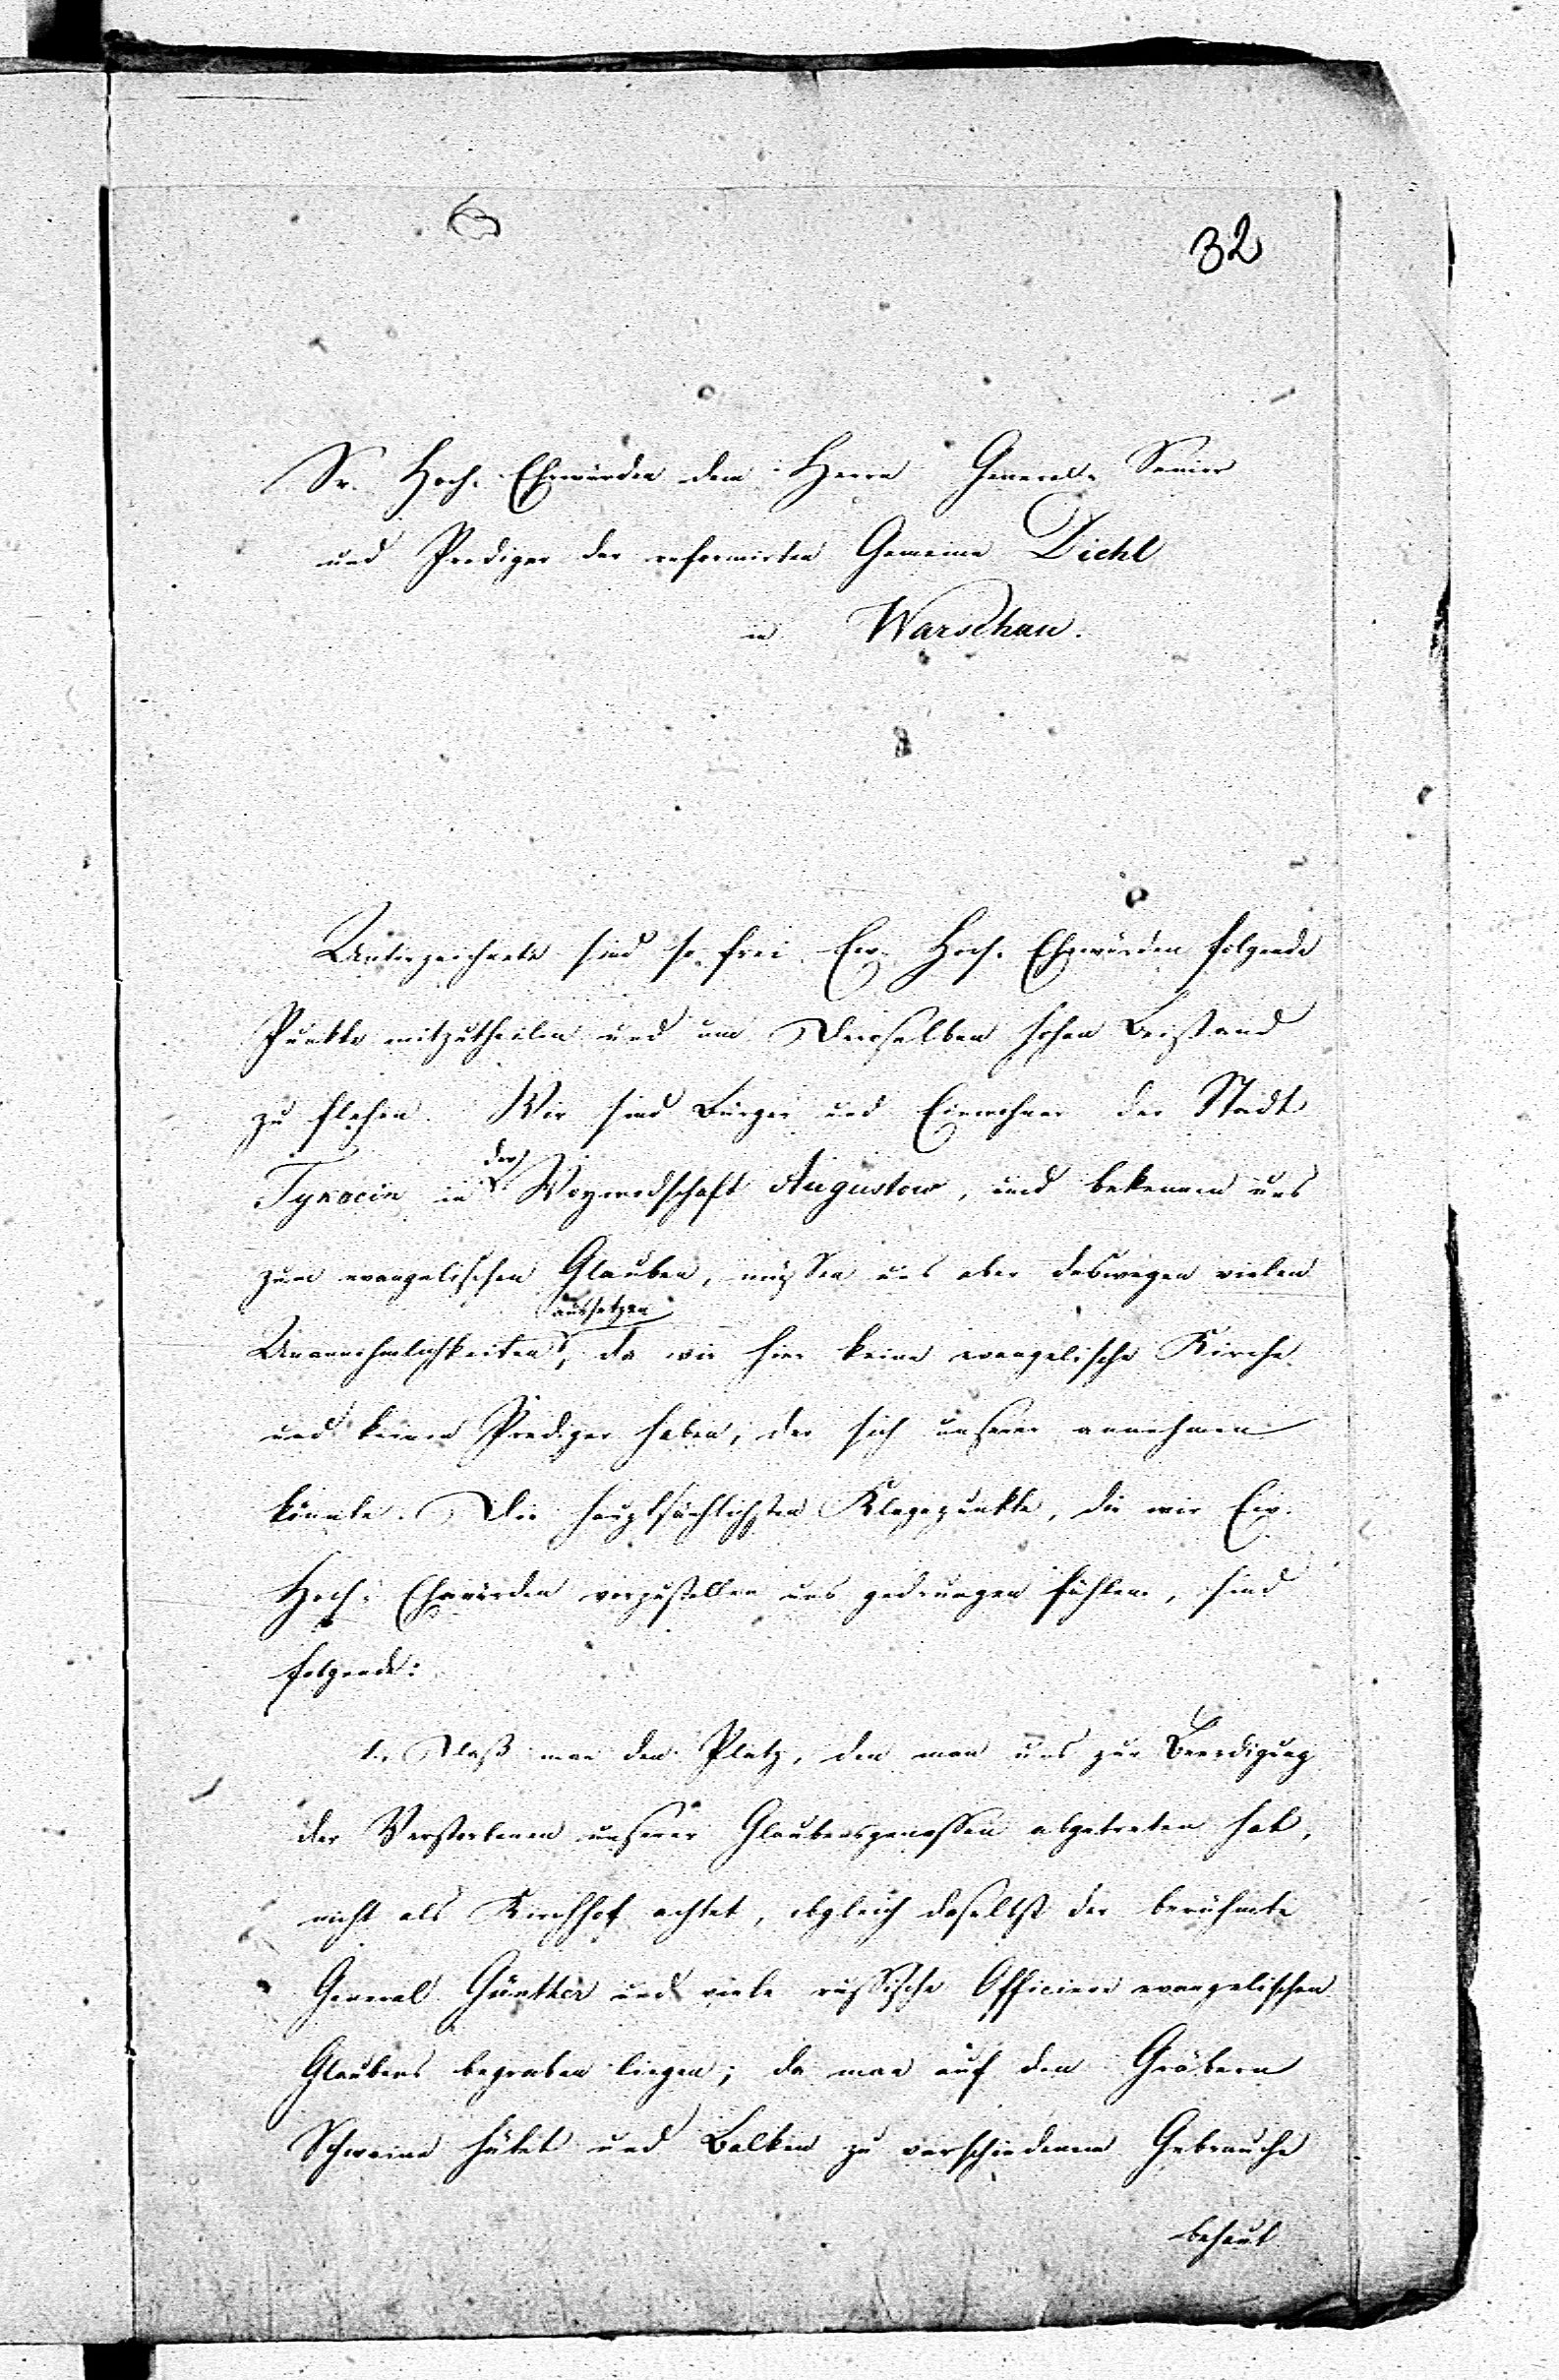 32
Sr. Hoch-Ehrwürden dem Herrn General-Senior
und Prediger der reformirten Gemeine Diehl
in Warschau.
Unterzeichnete sind so frei Ew. Hoch-Ehrwürden folgende
Punkte mitzutheilen und um Derselben hohen Beistand
zu flehen. Wir sind Bürger und Einwohner der Stadt
Tykocin in der Woywodschaft Augustow, und bekennen uns
zum evangelischen Glauben, müssen uns aber deswegen vielen
Unannehmlichkeiten aussetzen, da wir hier keine evangelische Kirche
und keinen Prediger haben, der sich unserer annehmen
könnte. Die hauptsächlichsten Klagepunkte, die wir Ew.
Hoch-Ehrwürden vorzustellen uns gedrungen fühlen, sind
folgende:
1. Daß man den Platz, den man uns zur Beerdigung
der Verstorbenen unserer Glaubensgenossen abgetreten hat,
nicht als Kirchhof achtet, obgleich daselbst der berühmte
General Günther und viele russische Officiere evangelischen
Glaubens begraben liegen; da man auf den Gräbern
Schweine hütet und Balken zu verschiedenem Gebrauche
behaut